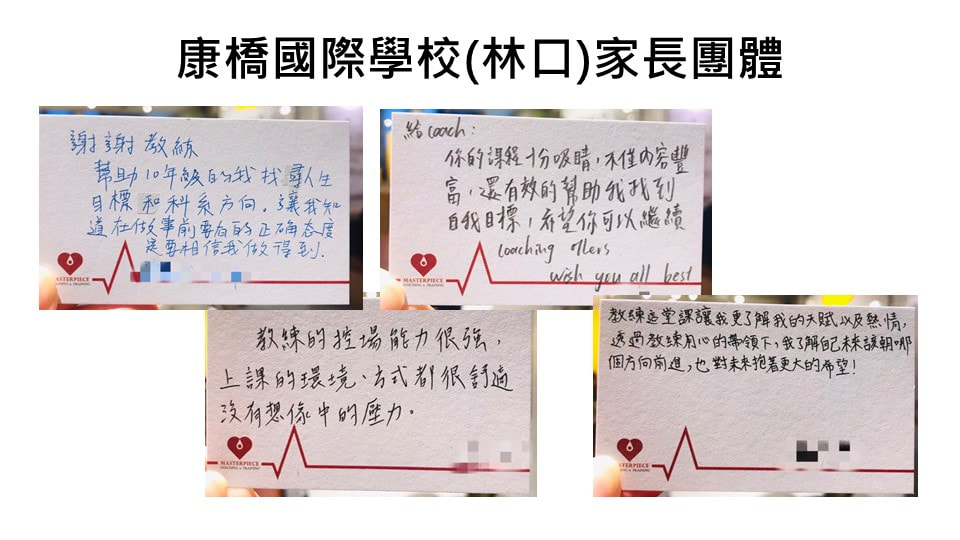 康橋國際學校(林口)家長團體
謝謝教練
幫助10年級的我找尋人生
目標和科系方向。讓我知
道在做事前要有的正确态度
是要相信我做得到.
MASTERPIECE
COACHING & TRAINING
給coach:
你的課程十分吸睛,不僅內容豐
富,還有效的幫助我找到
自我目標,希望你可以繼續
coaching others
wish you all best
MASTERPIECE
COACHING & TRAINING
教練的控場能力很強,
上課的環境、方式都很舒適
沒有想像中的壓力。
MASTERPIECE
COACHING & TRAINING
教練這堂課讓我更了解我的天賦以及熱情,
透過教練用心的帶領下,我了解自己未來該朝哪
個方向前進,也對未來抱著更大的希望!
MASTERPIECE
COACHING & TRAINING